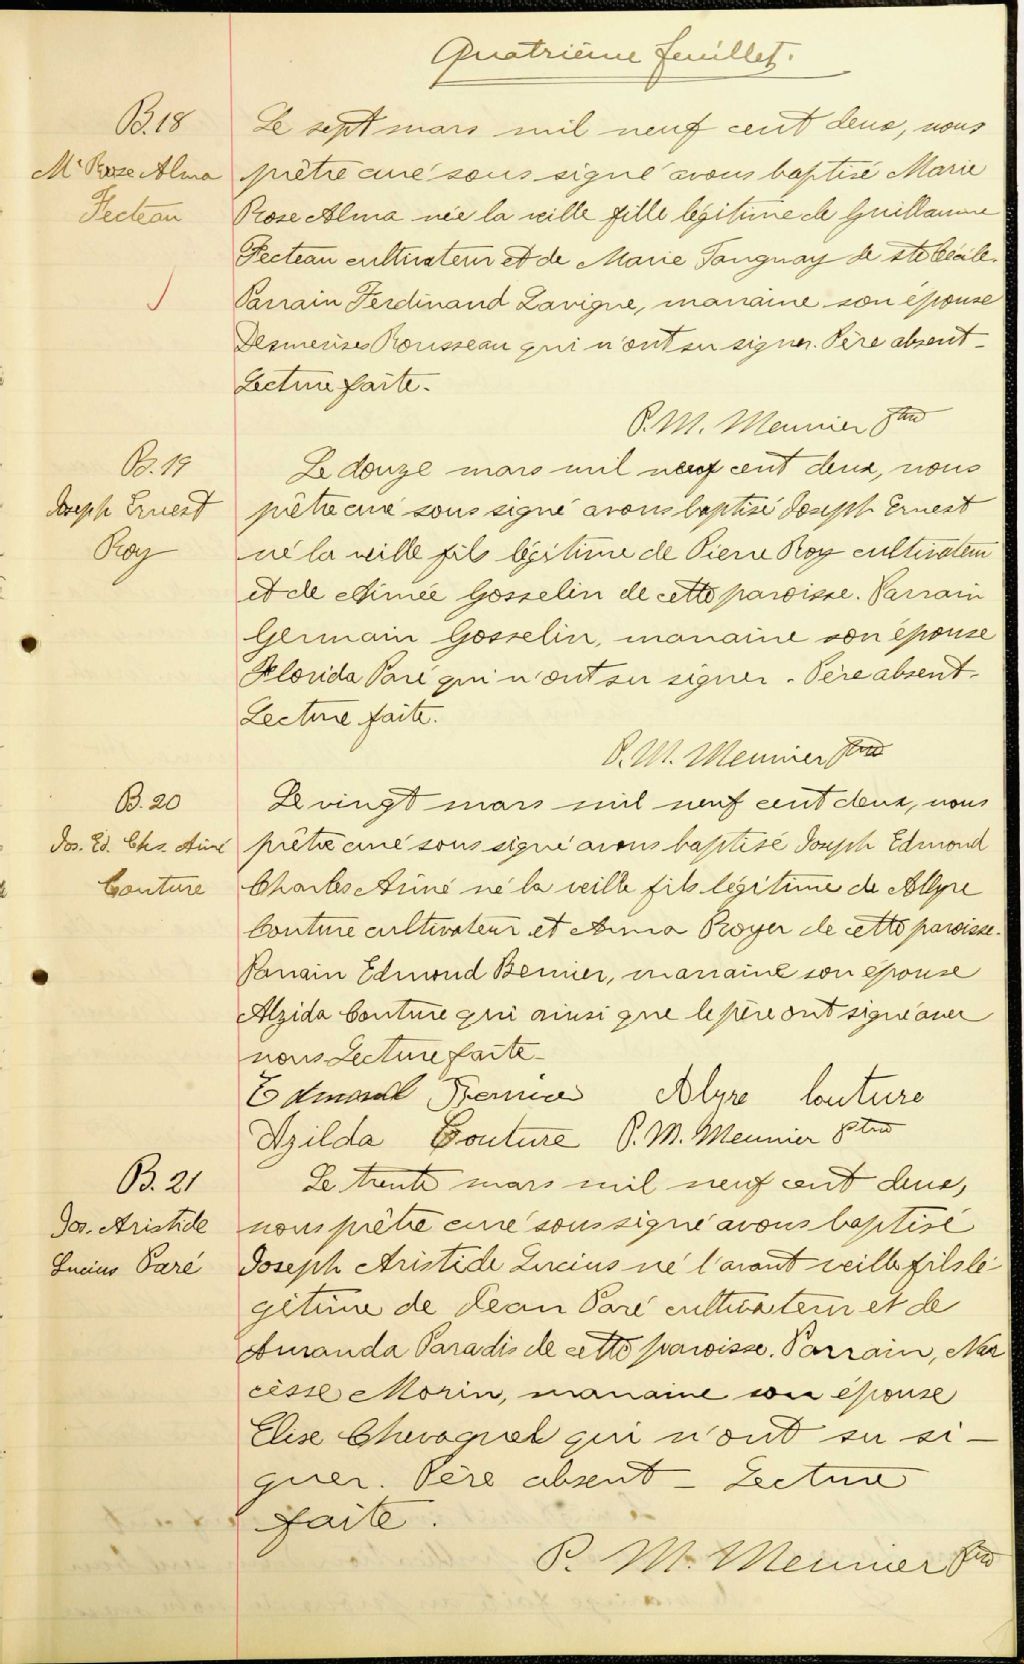 Quatrième feuillet.
B.18
Mie Rose Alma
Fecteau
Le sept mars mil neuf cent deux, nous
prêtre curé sous signé avons baptisé Marie
Rose Alma née la veille fille légitime de Guillaume
Fecteau cultivateur et de Marie Tanguay de Ste Cécile.
Parrain Ferdinand Lavigne, marraine son épouse
Desmerises Rousseau qui n'ont su signer. Père absent -
Lecture faite.
P. M. Meunier ptre
B. 19
Joseph Ernest
Roy
Le douze mars mil neuf cent deux, nous
prêtre curé sous signé avons baptisé Joseph Ernest
né la veille fils légitime de Pierre Roy cultivateur
et de Aimée Gosselin de cette paroisse. Parrain
Germain Gosselin, marraine son épouse
Florida Paré qui n'ont su signer. Père absent -
Lecture faite.
P. M. Meunier ptre
B. 20
Jos. Ed. Chs. Aimé
Couture
Le vingt mars mil neuf cent deux, nous
prêtre curé sous signé avons baptisé Joseph Edmond
Charles Aimé né la veille fils légitime de Alyre
Couture cultivateur et Anna Royer de cette paroisse.
Parrain Edmond Bernier, marraine son épouse
Alzida Couture qui ainsi que le père ont signé avec
nous Lecture faite -
Edmond Bernier Alyre Couture
Azilda Couture P. M. Meunier ptre
B. 21
Jos. Aristide
Lucius Paré
Le trente mars mil neuf cent deux,
nous prêtre curé sous signé avons baptisé
Joseph Aristide Lucius né l'avant veille fils lé-
gitime de Jean Paré cultivateur et de
Amanda Paradis de cette paroisse. Parrain, Nar
cisse Morin, marraine son épouse
Elise qui n'ont su si -
gner. Père absent - Lecture
faite.
P. M. Meunier ptre